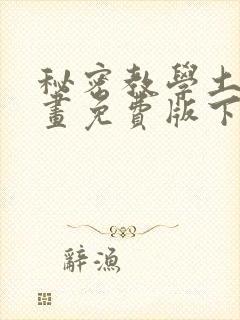 秘密教學土
畫免費版下
辭漁